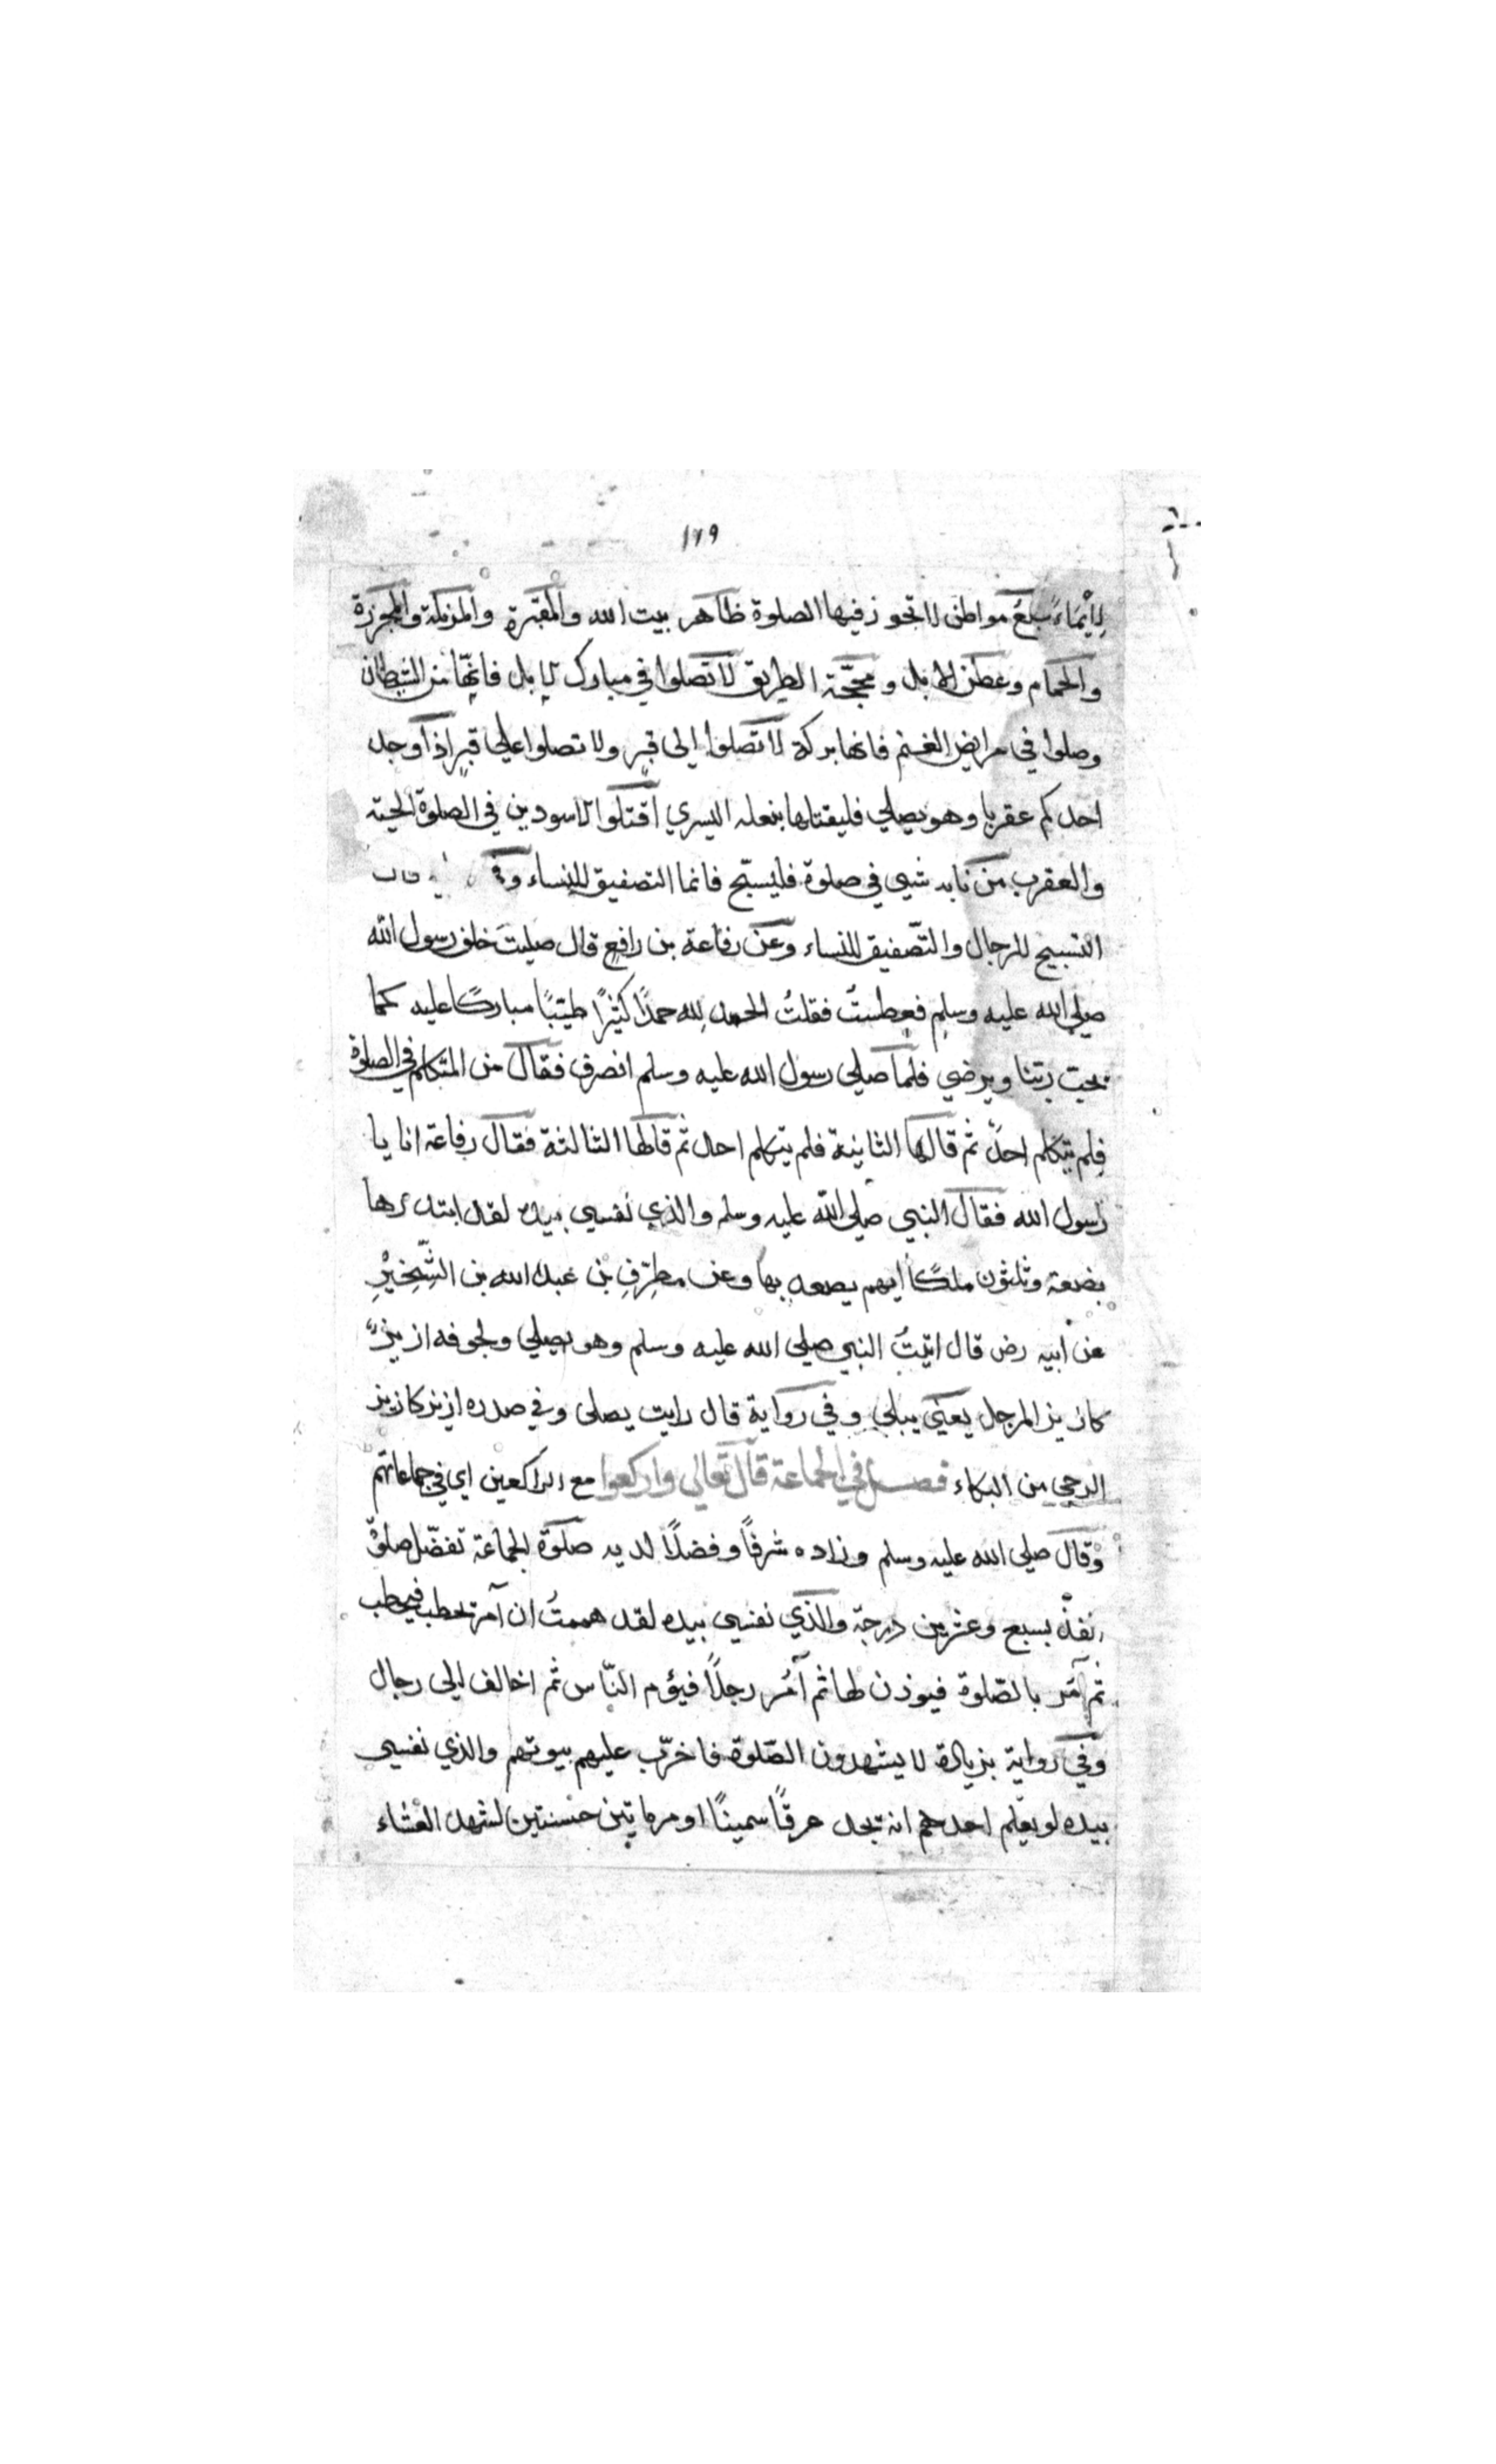 ١٢٩
لأيماء سبع مواطن لا تجوز فيها الصلوة ظاهر بيت الله والمقبرة والمزبلة والمجزرة
والحمام وعطن الابل ومحجّة الطريق لا تصلوا في مبارك الابل فانها من الشيطان
وصلوا في مرابض الغنم فانها بركة لا تصلوا الى قبر ولا تصلوا على قبر اذا وجد
احدكم عقربا وهو يصلي فليقتلها بنعله اليسري اقتلوا الاسودين في الصلوة الحية
والعقرب من نابه شيي في صلوة فليسبّح فانما التصفيق للنساء وفي قال
التسبيح للرجال والتّصفيق للنساء وعن رفاعة بن رافعٍ قال صليتَ خلف رسول الله
صلي الله عليه وسلم فعطستُ فقلتُ الحمد لله حمدًا كثيرًا طيّبًا مباركًا عليه كما
يحب ربّنا ويرضي فلما صلى رسول الله عليه وسلم انصرف فقال من المتكلم في الصلوة
فلم يتكلم احدٌ ثم قالها الثانية فلم يتكلم احد ثم قالها الثالثة فقال رفاعة انا يا
رسول الله فقال النبي صلى الله عليه وسلم والذي نفسي بيده لقد ابتدرها
بضعة وثلثون ملكًا ايهم يصعد بها وعن مطرّفِ بن عبد الله بن الشِّخِّيْرِ
عن ابيه رض قال اتيتُ النبي صلى الله عليه وسلم وهو يصلي ولجوفه ازيزٌ
كازيز المرجل يعني يبكي وفي رواية قال رايت يصلى وفي صدره ازيز كازيز
الرحى من البكاء فصل في الجماعة قال تعالى واركعوا مع الراكعين اي في جماعاتهم
وقال صلى الله عليه وسلم وزاده شرفًا وفضلًا لديه صلوة الجماعة تفضّل صلوة
الفذّ بسبع وعشرين درجة والذي نفسي بيده لقد هممتُ ان آمر بحطب فيحطب
ثم آمر بالصّلوة فيوذن لها ثم آمُر رجلًا فيؤم النّاس ثم اخالف الى رجال
وفي رواية بزيادة لا يشهدون الصّلوة فاخرّب عليهم بيوتهم والذي نفسي
بيده لو يعلم احدهم انه يجد عرقًا سمينًا او مرماتين حسنتين لشهد العشاء